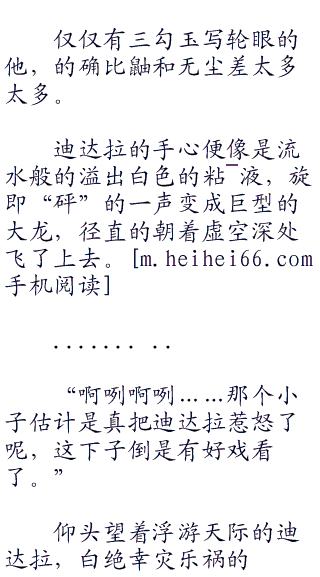 仅仅有三勾玉写轮眼的
他，的确比鼬和无尘差太多
太多。
迪达拉的手心便像是流
水般的溢出白色的粘¯液，旋
即“砰”的一声变成巨型的
大龙，径直的朝着虚空深处
飞了上去。[m.heihei66.com
手机阅读]
....... ..
“啊咧啊咧……那个小
子估计是真把迪达拉惹怒了
呢，这下子倒是有好戏看
了。”
仰头望着浮游天际的迪
达拉，白绝幸灾乐祸的